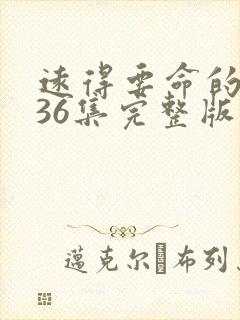 速得要命的
36集完整版
蓝克尔·布列